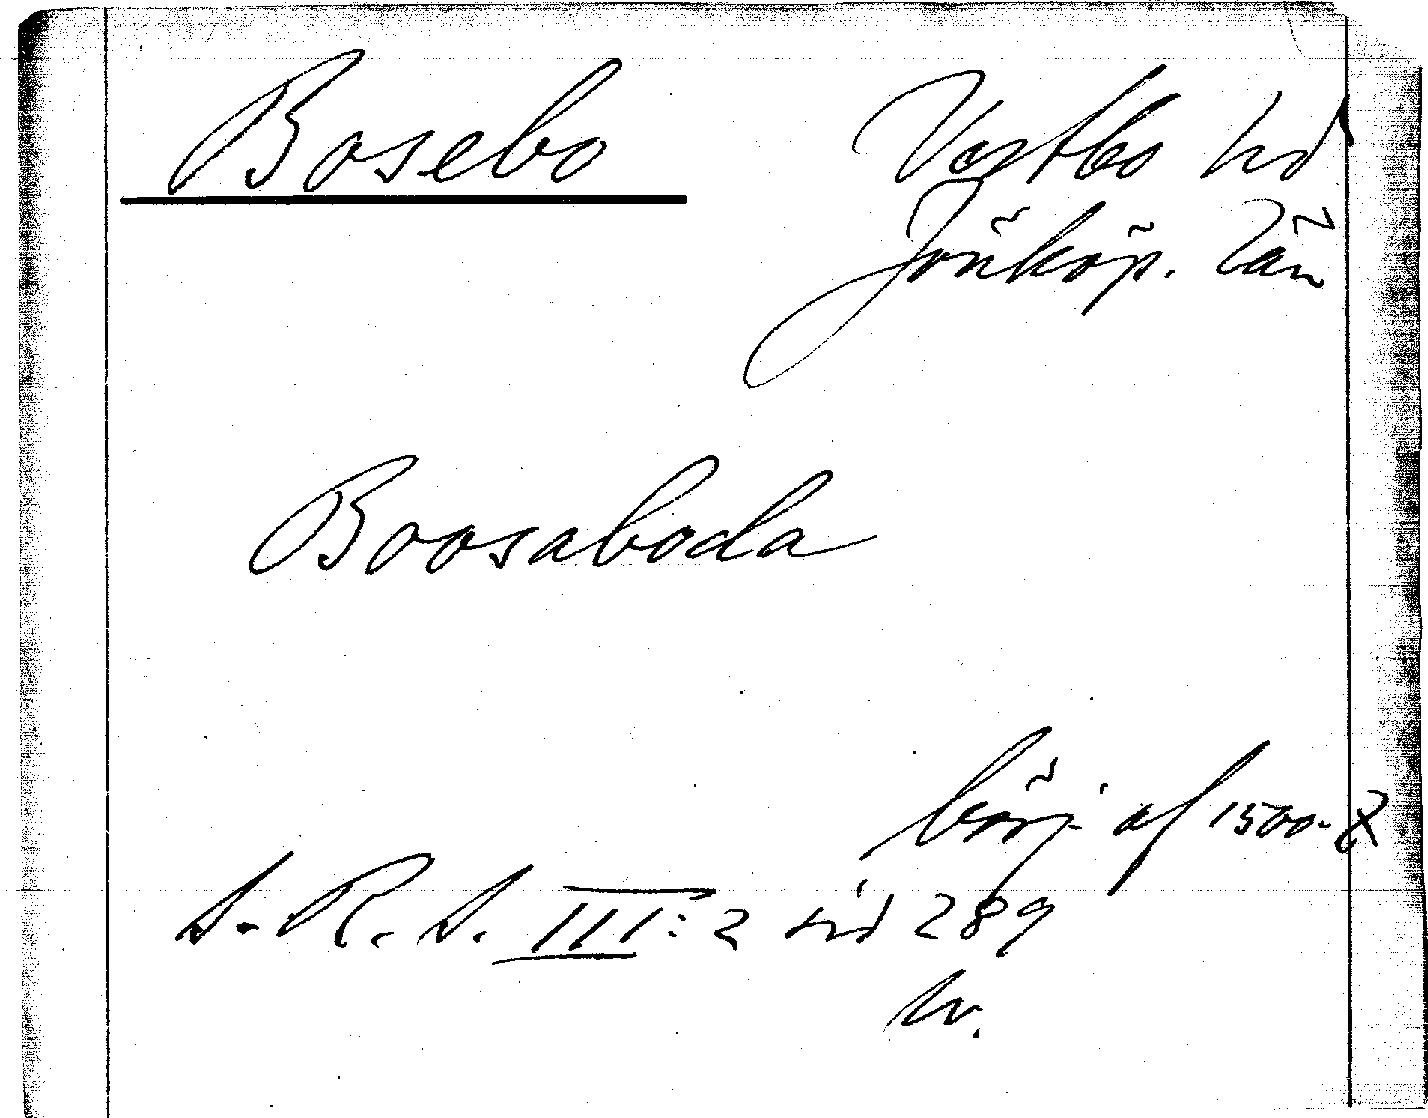 Bosebo Vestbo hd
Jönköp. Län
Boosaboda
börj. af 1500-t
S. R. S. III: 2 sid 289
hv.